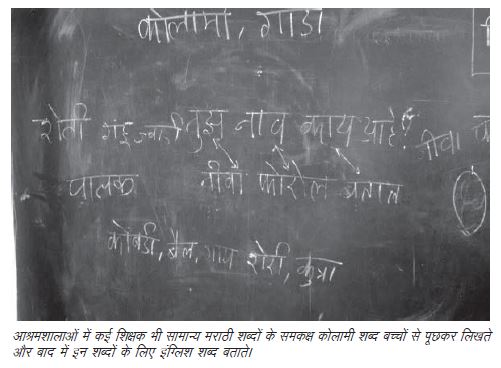 कोलामी, गोंडी
शेती गहू ज्वारी तुझ नाव काय आहे? नीवा
पालक नीवौ फोरोल बताल
कोंबडी, बैल, गाय शेरी, कुत्रा
आश्रमशालाओं में कई शिक्षक भी सामान्य मराठी शब्दों के समकक्ष कोलामी शब्द बच्चों से पूछकर लिखते
और बाद में इन शब्दों के लिए इंग्लिश शब्द बताते।